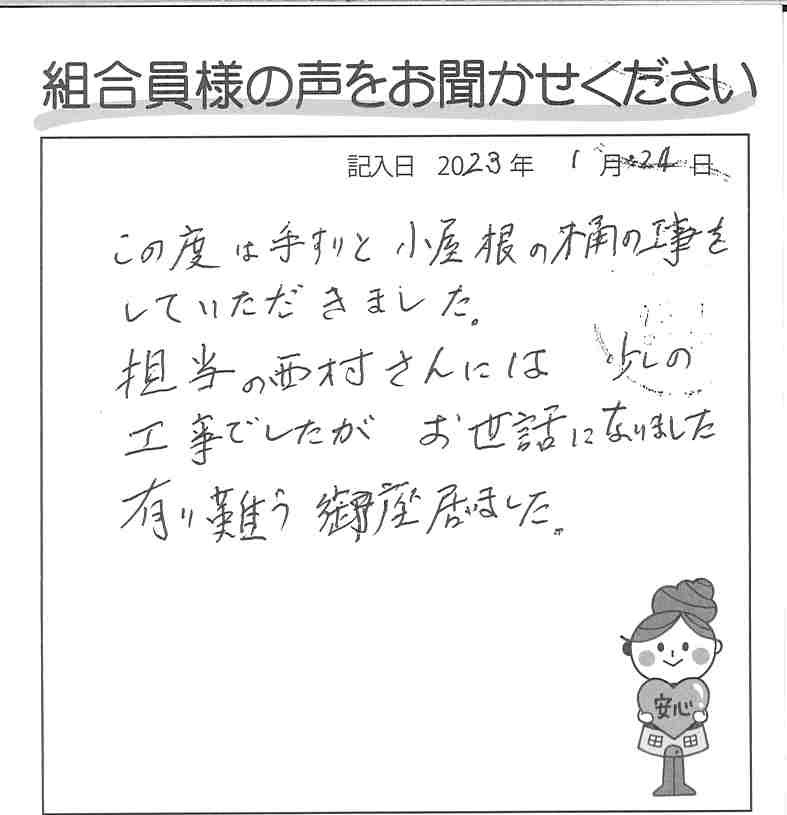 組合員様の声をお聞かせください
記入日 2023年 1月24日
この度は手すりと小屋根の桶の工事を
していただきました。
担当の西村さんには 少しの
工事でしたが お世話になりました
有り難う御座居ました。
安心